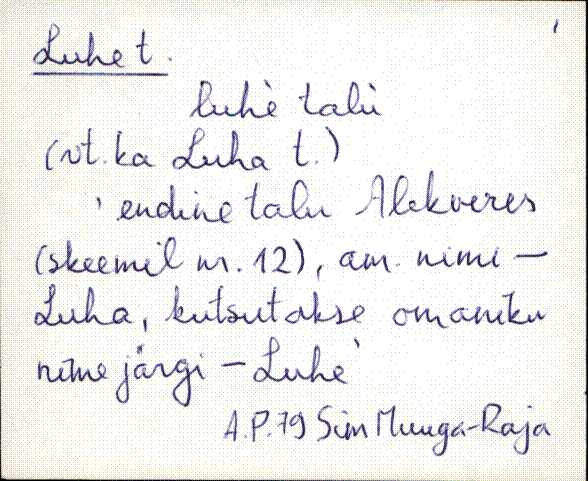 Luhe t.
luhè talù
(vt. ka Luha t.)
' endine talu Alekveres
(skeemil nr. 12), am. nimi –
Luha, kutsutakse omaniku
nime järgi – Luhè
A.P. 79 Sim Muuga-Raja